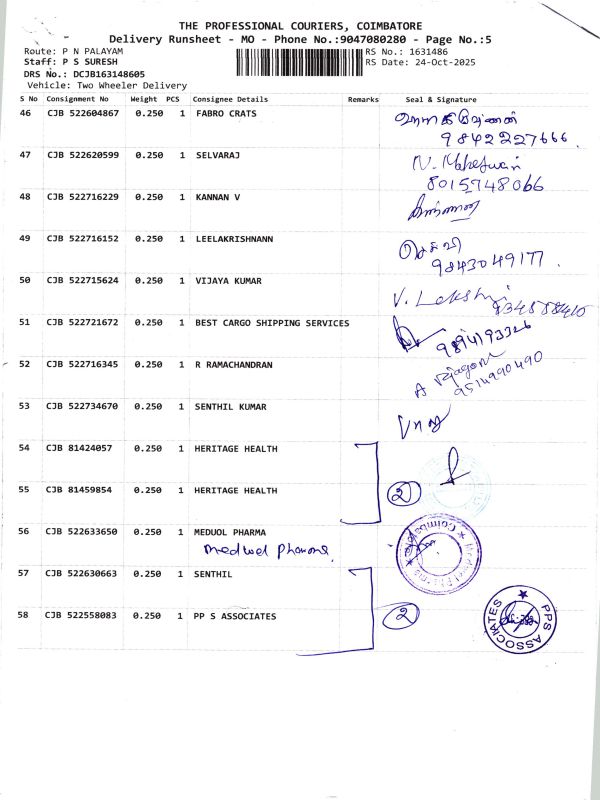 THE PROFESSIONAL COURIERS, COIMBATORE
Delivery Runsheet - MO - Phone No.:9047080280 - Page No.:5
Route: P N PALAYAM
RS No.: 1631486
Staff: P S SURESH
RS Date: 24-Oct-2025
DRS No.: DCJB163148605
Vehicle: Two Wheeler Delivery
S No Consignment No Weight PCS Consignee Details Remarks Seal & Signature
46 CJB 522604867 0.250 1 FABRO CRATS
9842227666
47 CJB 522620599 0.250 1 SELVARAJ N. Maheswari
8015748066
48 CJB 522716229 0.250 1 KANNAN V
49 CJB 522716152 0.250 1 LEELAKRISHNANN செல்வி
9843049177
50 CJB 522715624 0.250 1 VIJAYA KUMAR V. Lakshmi
51 CJB 522721672 0.250 1 BEST CARGO SHIPPING SERVICES
9894193326
52 CJB 522716345 0.250 1 R RAMACHANDRAN A Rajagoni
9514990490
53 CJB 522734670 0.250 1 SENTHIL KUMAR
54 CJB 81424057 0.250 1 HERITAGE HEALTH
55 CJB 81459854 0.250 1 HERITAGE HEALTH 2
56 CJB 522633650 0.250 1 MEDUOL PHARMA
Meduol Pharma
57 CJB 522630663 0.250 1 SENTHIL
58 CJB 522558083 0.250 1 PP S ASSOCIATES 2
PPS ASSOCIATES